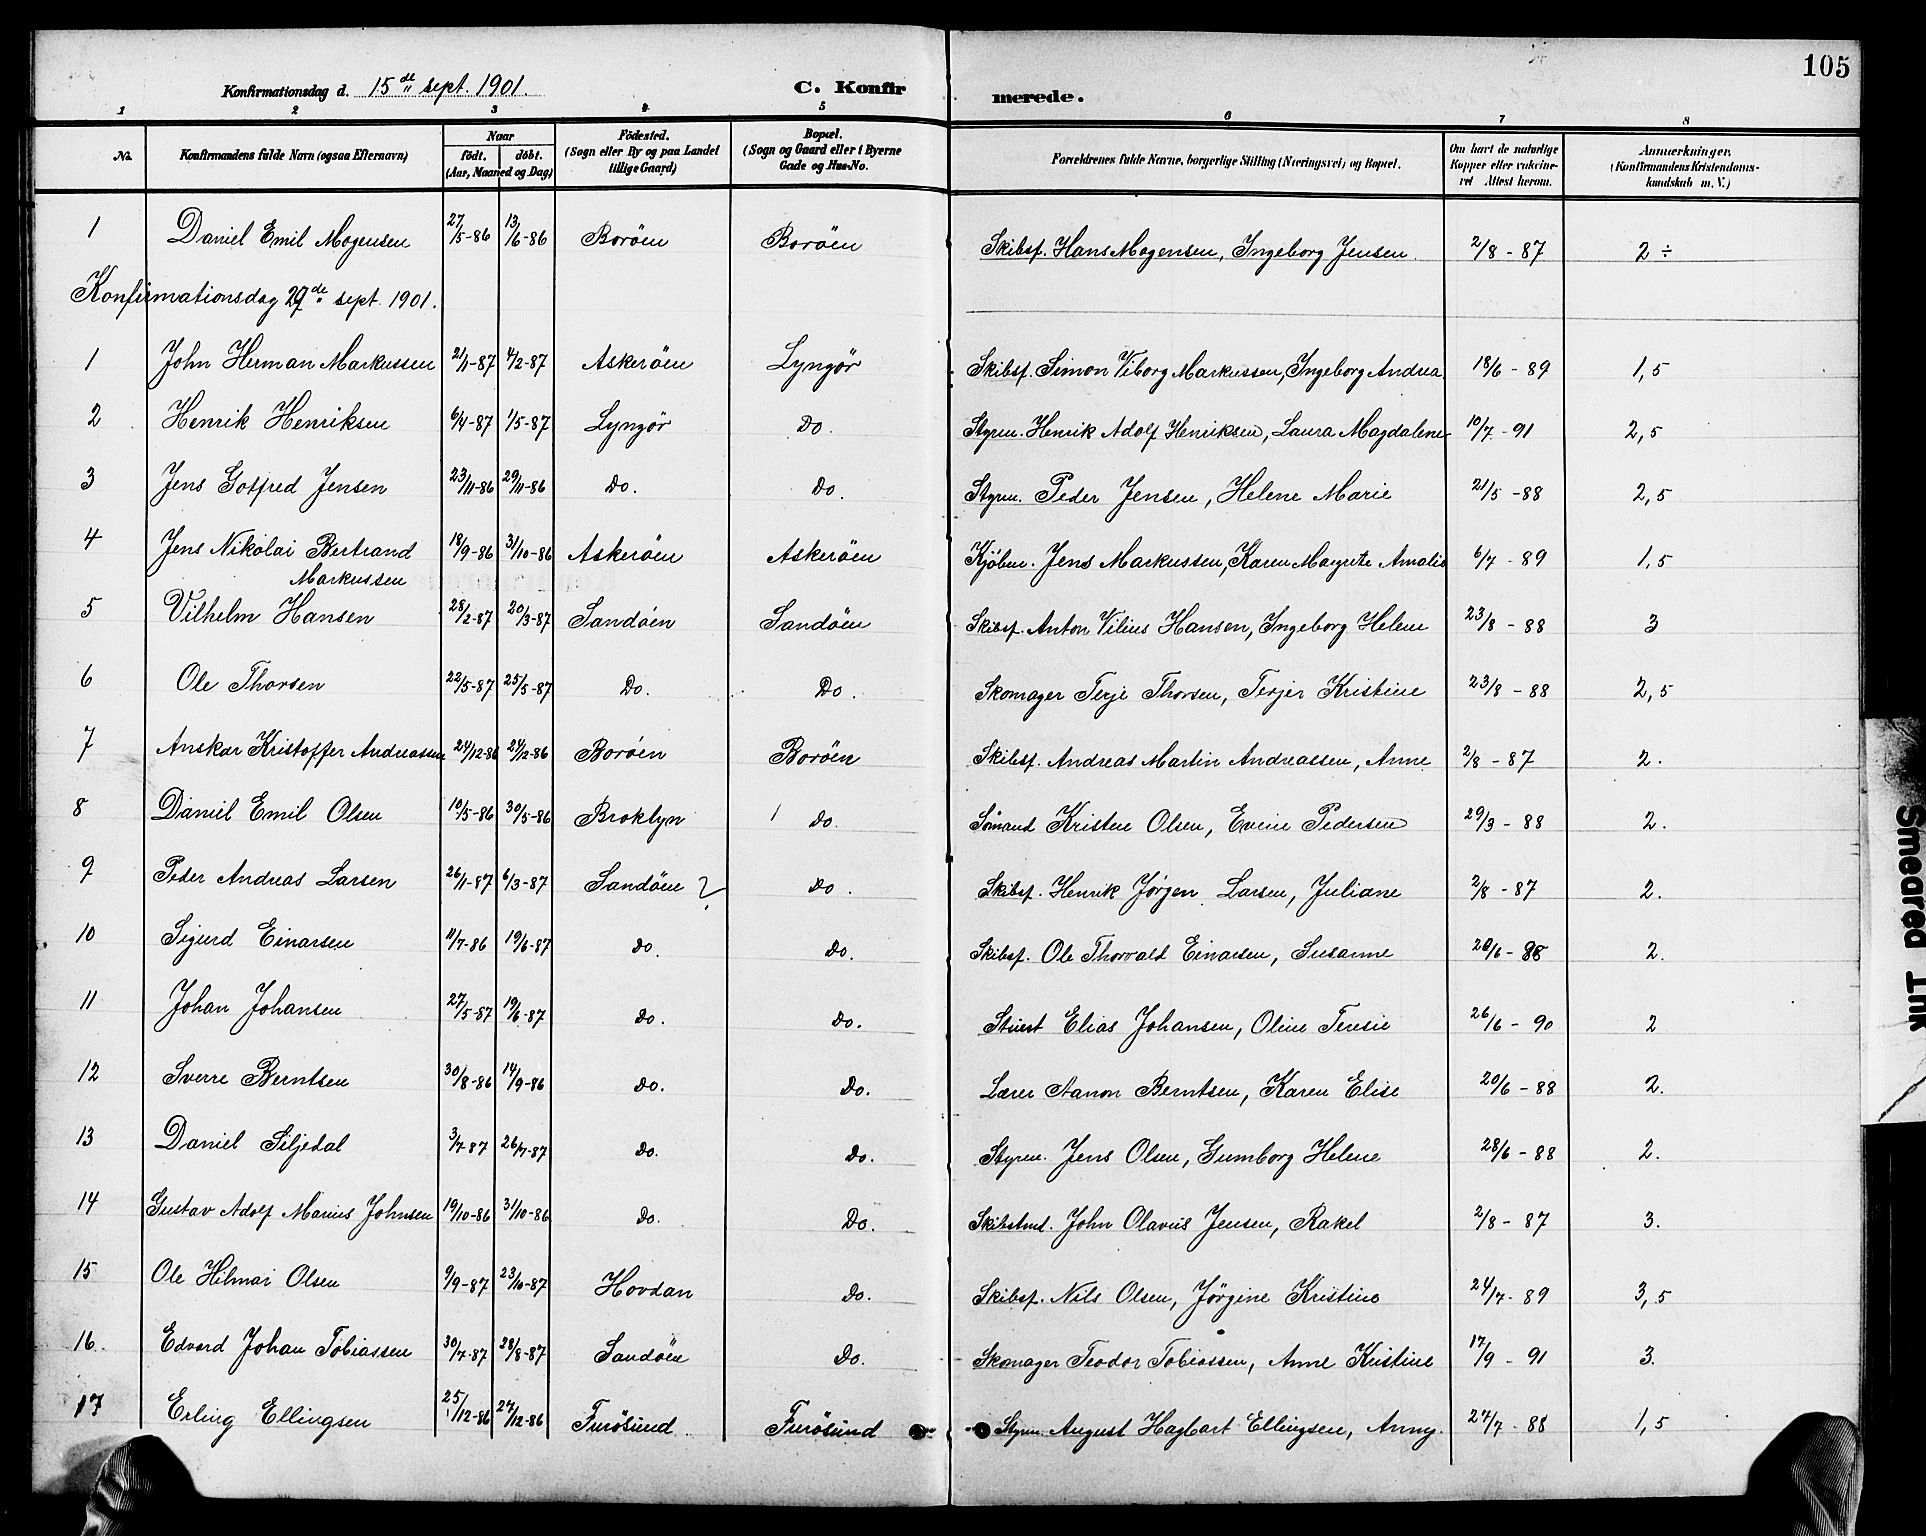 105
Konfirmationsdag d. 15de sept. 1901. C. Konfirmerede.
1 2 3 4 5 6 7 8
No. Konfirmandens fulde Navn (ogsaa Efternavn) Naar födt. döbt. (Aar, Maaned og Dag) Födested. (Sogn eller By og paa Landet tillige Gaard) Bopæl. (Sogn og Gaard eller i Byerne Gade og Hus-No. Forældrenes fulde Navne, borgerlige Stilling (Næringsvei) og Bopæl. Om havt de naturlige Kopper eller vakcineret Attest herom. Anmærkninger. (Konfirmandens Kristendomskundskab m. V.)
1 Daniel Emil Mogensen 27/5-86 13/6-86 Boröen Boröen Skibsf. Hans Mogensen, Ingeborg Jensen 2/8-87 2 ÷
Konfirmationsdag 29de sept. 1901.
1 John Herman Markussen 21/1-87 4/2-87 Askeröen Lyngör Skibsf. Simon Viborg Markussen, Ingeborg Andrea 18/6-89 1,5
2 Henrik Henriksen 6/4-87 1/5-87 Lyngör Do. Styrm. Henrik Adolf Henriksen, Laura Magdalene 10/7-91 2,5
3 Jens Gotfred Jensen 23/11-86 29/11-86 Do. Do. Styrm. Peder Jensen, Helene Marie 21/5-88 2,5
4 Jens Nikolai Bertrand 18/9-86 31/10-86 Askeröen Askeröen Kjöbm. Jens Markussen, Karen Margrete Amalie 6/7-89 1,5
Markussen
5 Vilhelm Hansen 28/2-87 20/3-87 Sandöen Sandöen Skibsf. Anton Vilius Hansen, Ingeborg Helene 23/8-88 3
6 Ole Thorsen 22/5-87 25/5-87 Do. Do. Skomager Terje Thorsen, Terjer Kristine 23/8-88 2,5
7 Anskar Kristoffer Andreassen 24/12-86 24/12-86 Boröen Boröen Skibsf. Andreas Martin Andreassen, Anne 2/8-87 2.
8 Daniel Emil Olsen 10/5-86 30/5-86 Broklyn Do. Sömand Kristen Olsen, Evine Pedersen 29/3-88 2.
9 Peder Andreas Larsen 26/1-87 6/3-87 Sandöen ? Do. Skibsf. Henrik Jörgen Larsen, Juliane 2/8-87 2.
10 Sigurd Einarsen 11/7-86 19/6-87 Do. Do. Skibsf. Ole Thorvald Einarsen, Susanne 20/6-88 2.
11 Johan Johansen 27/5-87 19/6-87 Do. Do. Stuert Elias Johansen, Oline Teresie 26/6-90 2
12 Sverre Berntsen 30/8-86 14/9-86 Do. Do. Lærer Aanon Berntsen, Karen Elise 20/6-88 2.
13 Daniel Siljedal 3/7-87 26/7-87 Do. Do. Styrm. Jens Olsen, Gumborg Helene 28/6-88 2.
14 Gustav Adolf Marius Johnsen 19/10-86 31/10-86 Do. Do. John Olavus Jensen, Rakel 2/8-87 3.
15 Ole Hilmar Olsen 9/9-87 23/10-87 Hovdan Do. Skibsf. Nils Olsen, Jörgine Kristine 24/7-89 3,5
16. Edvard Johan Tobiassen 30/7-87 28/8-87 Sandöen Do. Skomager Teodor Tobiassen, Anne Kristine 17/9-91 3.
17 Erling Ellingsen 25/12-86 27/12-86 Furösund Furösund Styrm. August Hagbart Ellingsen, Anny. 27/7-88 1,5
Smeared Ink